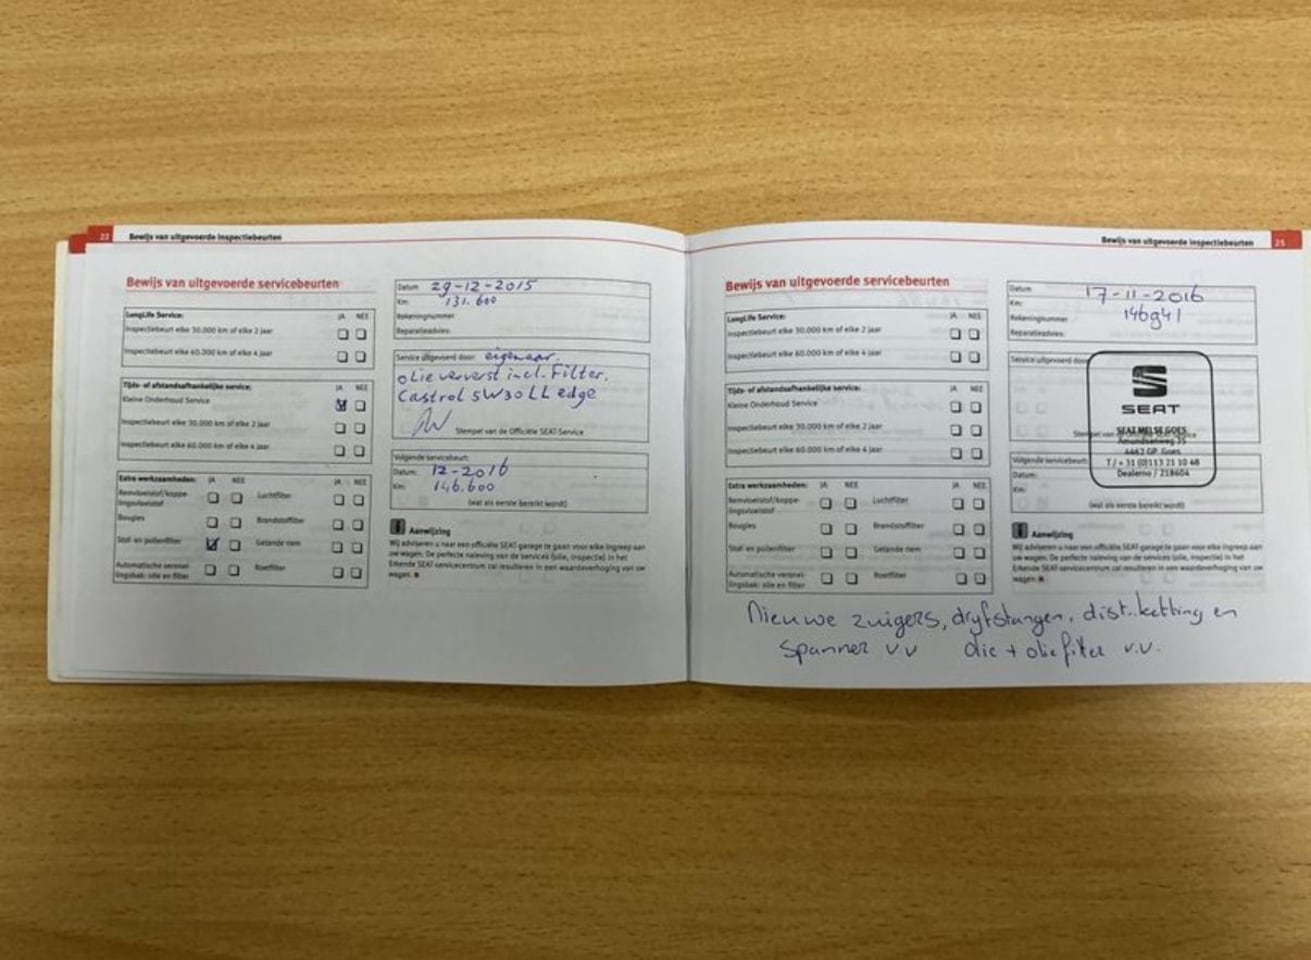 22 Bewijs van uitgevoerde inspectiebeurten
Bewijs van uitgevoerde servicebeurten
LongLife Service: JA NEE
Inspectiebeurt elke 30.000 km of elke 2 jaar
Inspectiebeurt elke 60.000 km of elke 4 jaar
Tijds- of afstandsafhankelijke service: JA NEE
Kleine Onderhoud Service
Inspectiebeurt elke 30.000 km of elke 2 jaar
Inspectiebeurt elke 60.000 km of elke 4 jaar
Extra werkzaamheden: JA NEE JA NEE
Remvloeistof/koppe-
lingsvloeistof Luchtfilter
Bougies Brandstoffilter
Stof- en pollenfilter Getande riem
Automatische versnel-
lingsbak: olie en filter Roetfilter
Datum 29-12-2015
Km: 131.600
Rekeningnummer
Reparatieadvies:
Service uitgevoerd door: eigenaar.
olie ververst incl. Filter.
Castrol 5W30 LL edge
Stempel van de Officiële SEAT-Service
Volgende servicebeurt:
Datum: 12-2016
Km: 146.600
(wat als eerste bereikt wordt)
Aanwijzing
Wij adviseren u naar een officiële SEAT garage te gaan voor elke ingreep aan
uw wagen. De perfecte naleving van de services (olie, inspectie) in het
Erkende SEAT servicecentrum zal resulteren in een waardeverhoging van uw
wagen.
Bewijs van uitgevoerde inspectiebeurten 25
Bewijs van uitgevoerde servicebeurten
LongLife Service: JA NEE
Inspectiebeurt elke 30.000 km of elke 2 jaar
Inspectiebeurt elke 60.000 km of elke 4 jaar
Tijds- of afstandsafhankelijke service: JA NEE
Kleine Onderhoud Service
Inspectiebeurt elke 30.000 km of elke 2 jaar
Inspectiebeurt elke 60.000 km of elke 4 jaar
Extra werkzaamheden: JA NEE JA NEE
Remvloeistof/koppe-
lingsvloeistof Luchtfilter
Bougies Brandstoffilter
Stof- en pollenfilter Getande riem
Automatische versnel-
lingsbak: olie en filter Roetfilter
Datum 17-11-2016
Km: 146941
Rekeningnummer
Reparatieadvies:
Service uitgevoerd door
SEAT
SEAT MELSE GOES
Stempel van de
4462 GP Goes
T / + 31 (0)113 21 10 48
Dealerno / 218604
Volgende servicebeurt:
Datum:
Km:
(wat als eerste bereikt wordt)
Aanwijzing
Wij adviseren u naar een officiële SEAT garage te gaan voor elke ingreep aan
uw wagen. De perfecte naleving van de services (olie, inspectie) in het
Erkende SEAT servicecentrum zal resulteren in een waardeverhoging van uw
wagen.
Nieuwe zuigers, dryfstangen, dist.ketting en
spanner v.v olie + oliefilter v.v.